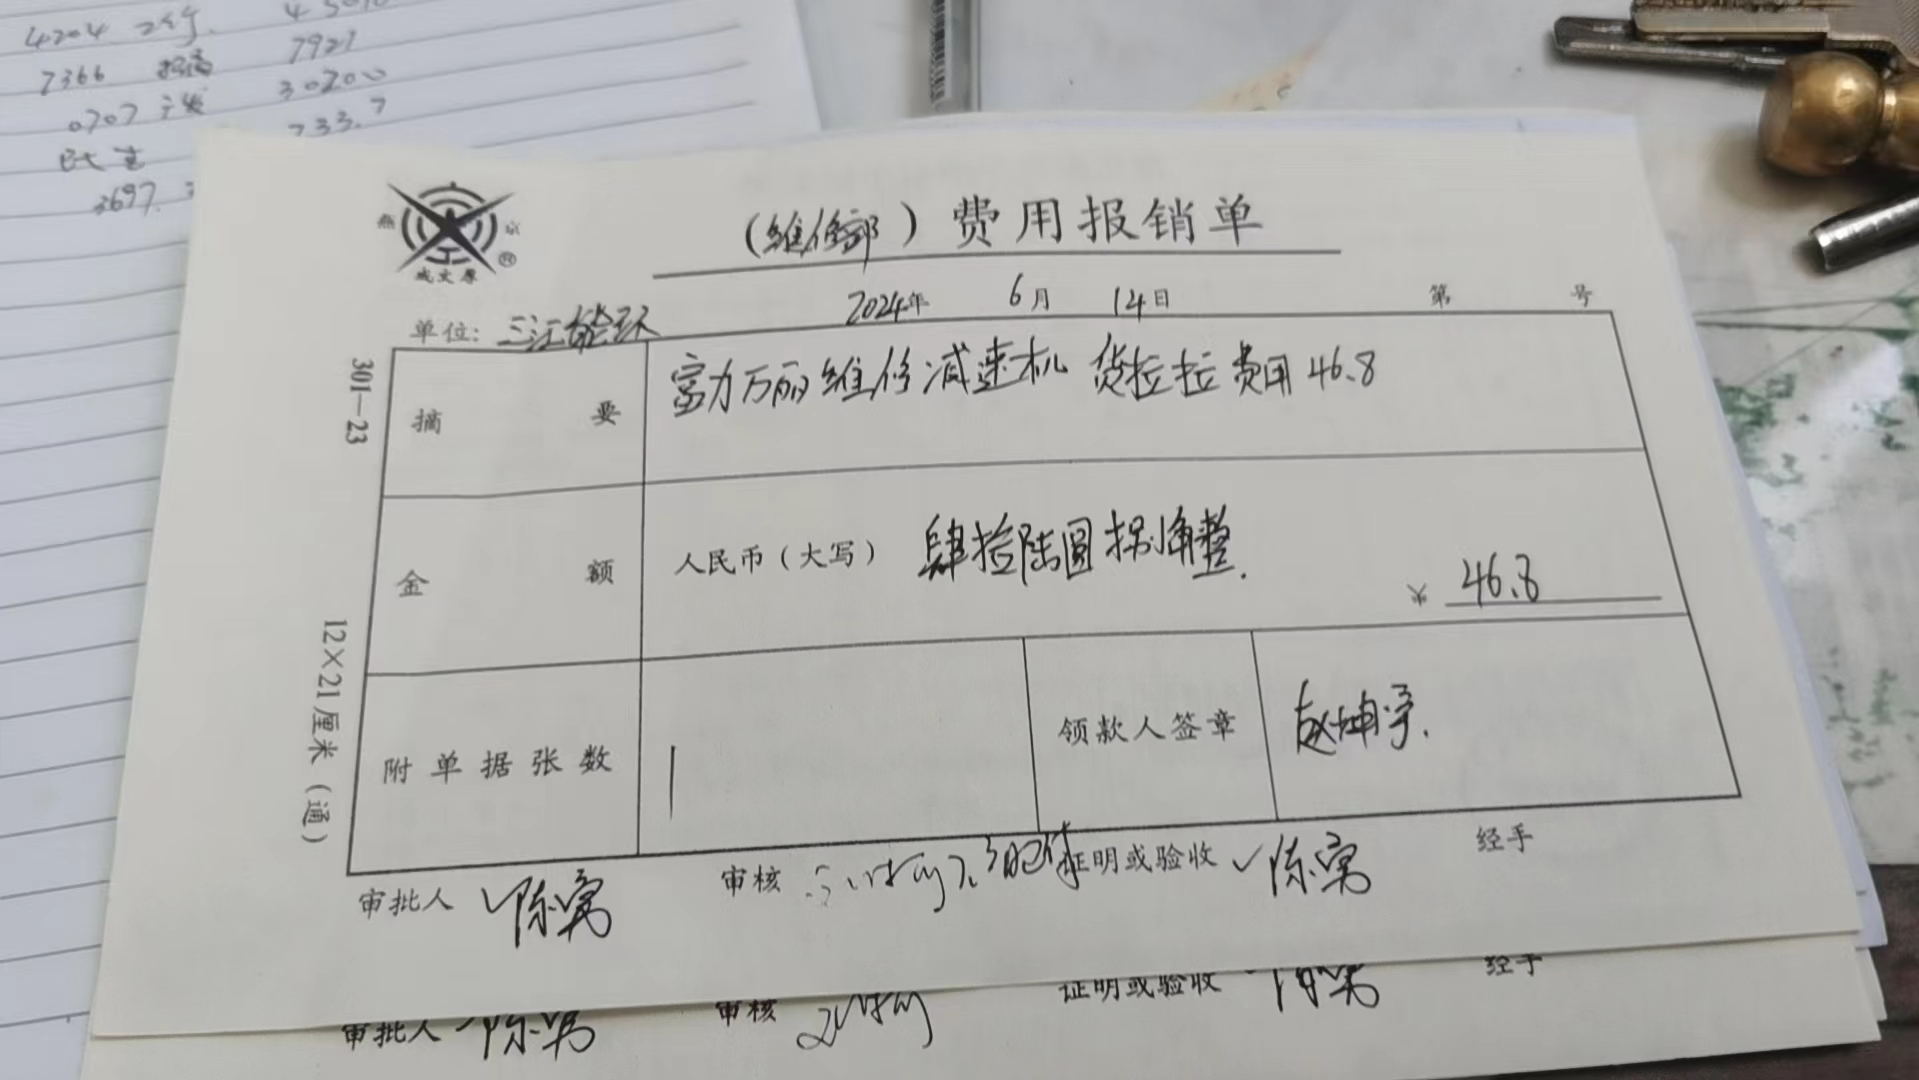 4204 工行.
7366 招商 7927
0707 广发 30200
民生 733.7
3697.
燕 京
成文厚
®
(维修部) 费用报销单
2024年 6月 14日 第 号
单位: 三江能环
301—23
12×21厘米(通)
摘要 富力万丽维修减速机 货拉拉费用46.8
金额 人民币(大写) 肆拾陆圆捌角整. ¥ 46.8
附单据张数 1 领款人签章 赵坤宇.
审批人 审核 证明或验收 经手
审批人 审核 证明或验收 经手